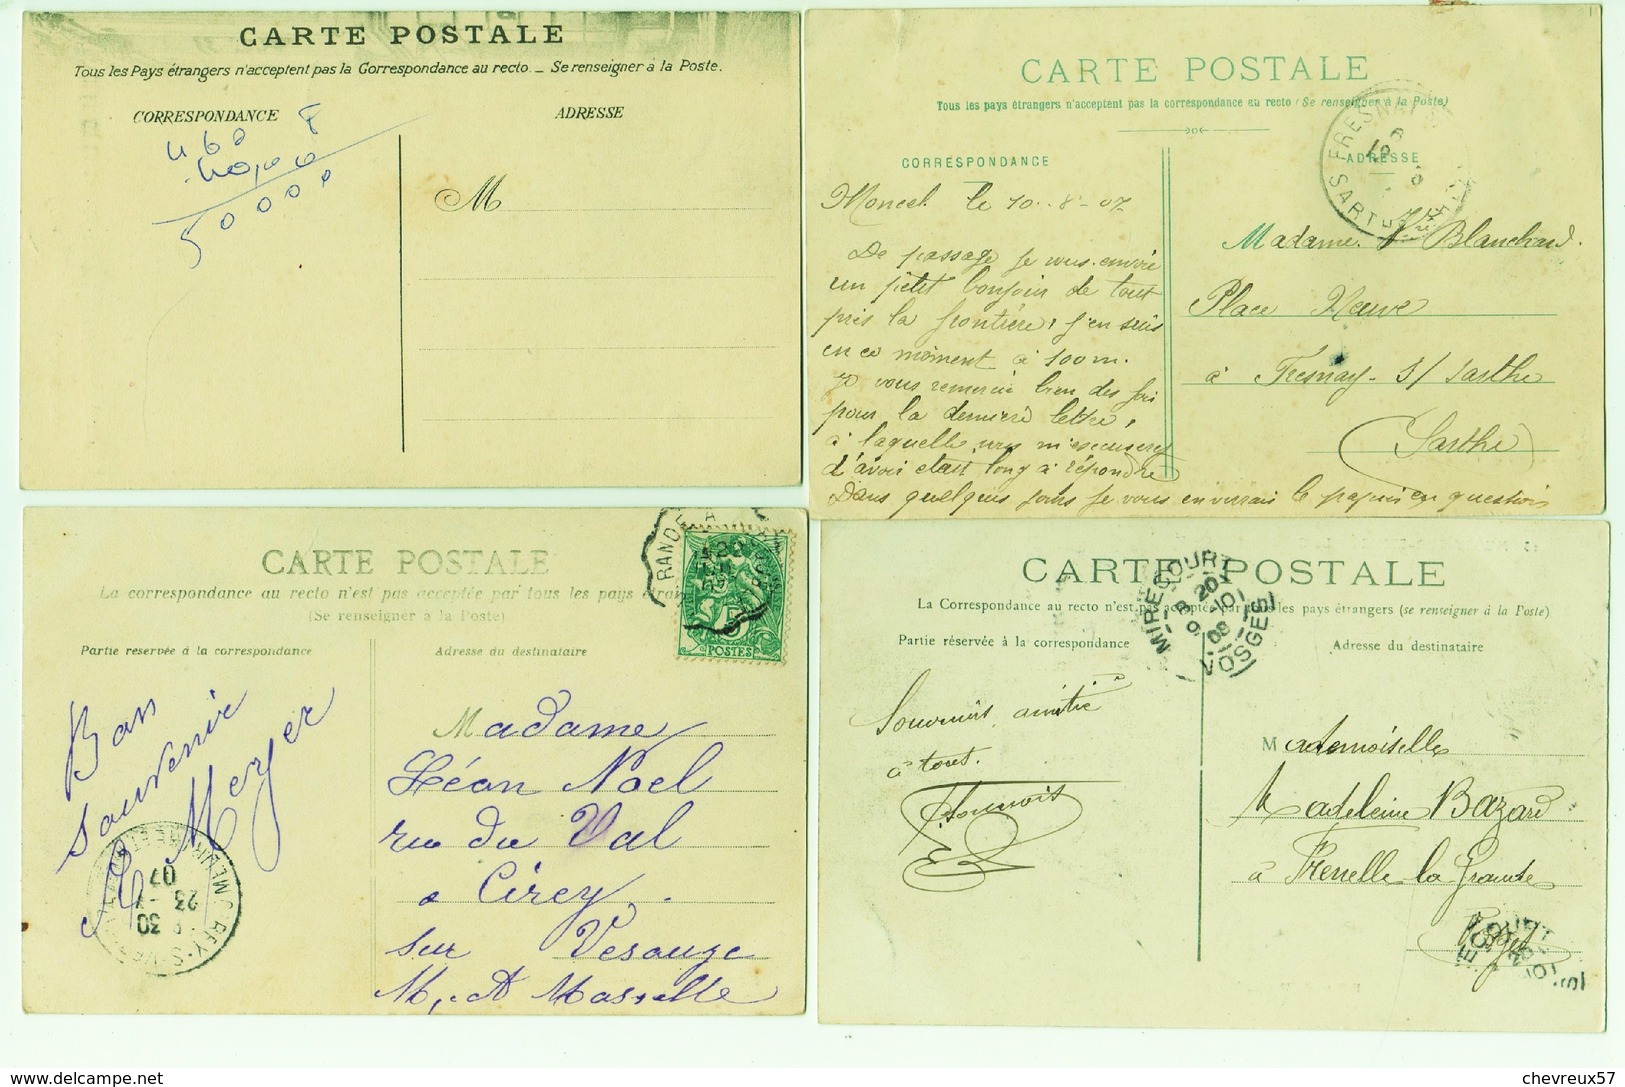 CARTE POSTALE
Tous les Pays étrangers n'acceptent pas la Correspondance au recto. _ Se renseigner à la Poste.
CORRESPONDANCE
ADRESSE
5000
M
CARTE POSTALE
Tous les pays étrangers n'acceptent pas la correspondance au recto (Se renseigner à la Poste)
CORRESPONDANCE
ADRESSE
FRESNAY
SARTHE
Moncel le 10.8.07
De passage je vous envoie
un petit bonjour de tout
près la frontière, j'en suis
en ce moment à 100 m.
Je vous remercie bien des fois
pour la dernière lettre,
à laquelle vous m'excuserez
d'avoir était long à répondre
Dans quelques jours je vous enverrais le papier en question
Madame Vve Blanchard.
Place Neuve
à Fresnay s/ Sarthe
(Sarthe)
CARTE POSTALE
La correspondance au recto n'est pas acceptée par tous les pays étran
(Se renseigner à la Poste)
Partie réservée à la correspondance
Adresse du destinataire
5
POSTES
Bon
souvenir
Meyer
Madame
Léon Noel
rue du Val
a Cirey
sur Vesouze
M, et Moselle
07
23
30
CARTE POSTALE
La Correspondance au recto n'est pas acceptée par tous les pays étrangers (se renseigner à la Poste)
Partie réservée à la correspondance
Adresse du destinataire
MIRECOURT
VOSGES
Souvenirs amitié
à tous.
Mademoiselle
Madeleine Bazard
à Frenelle la Grande
Vosges
delcampe.net
chevreux57